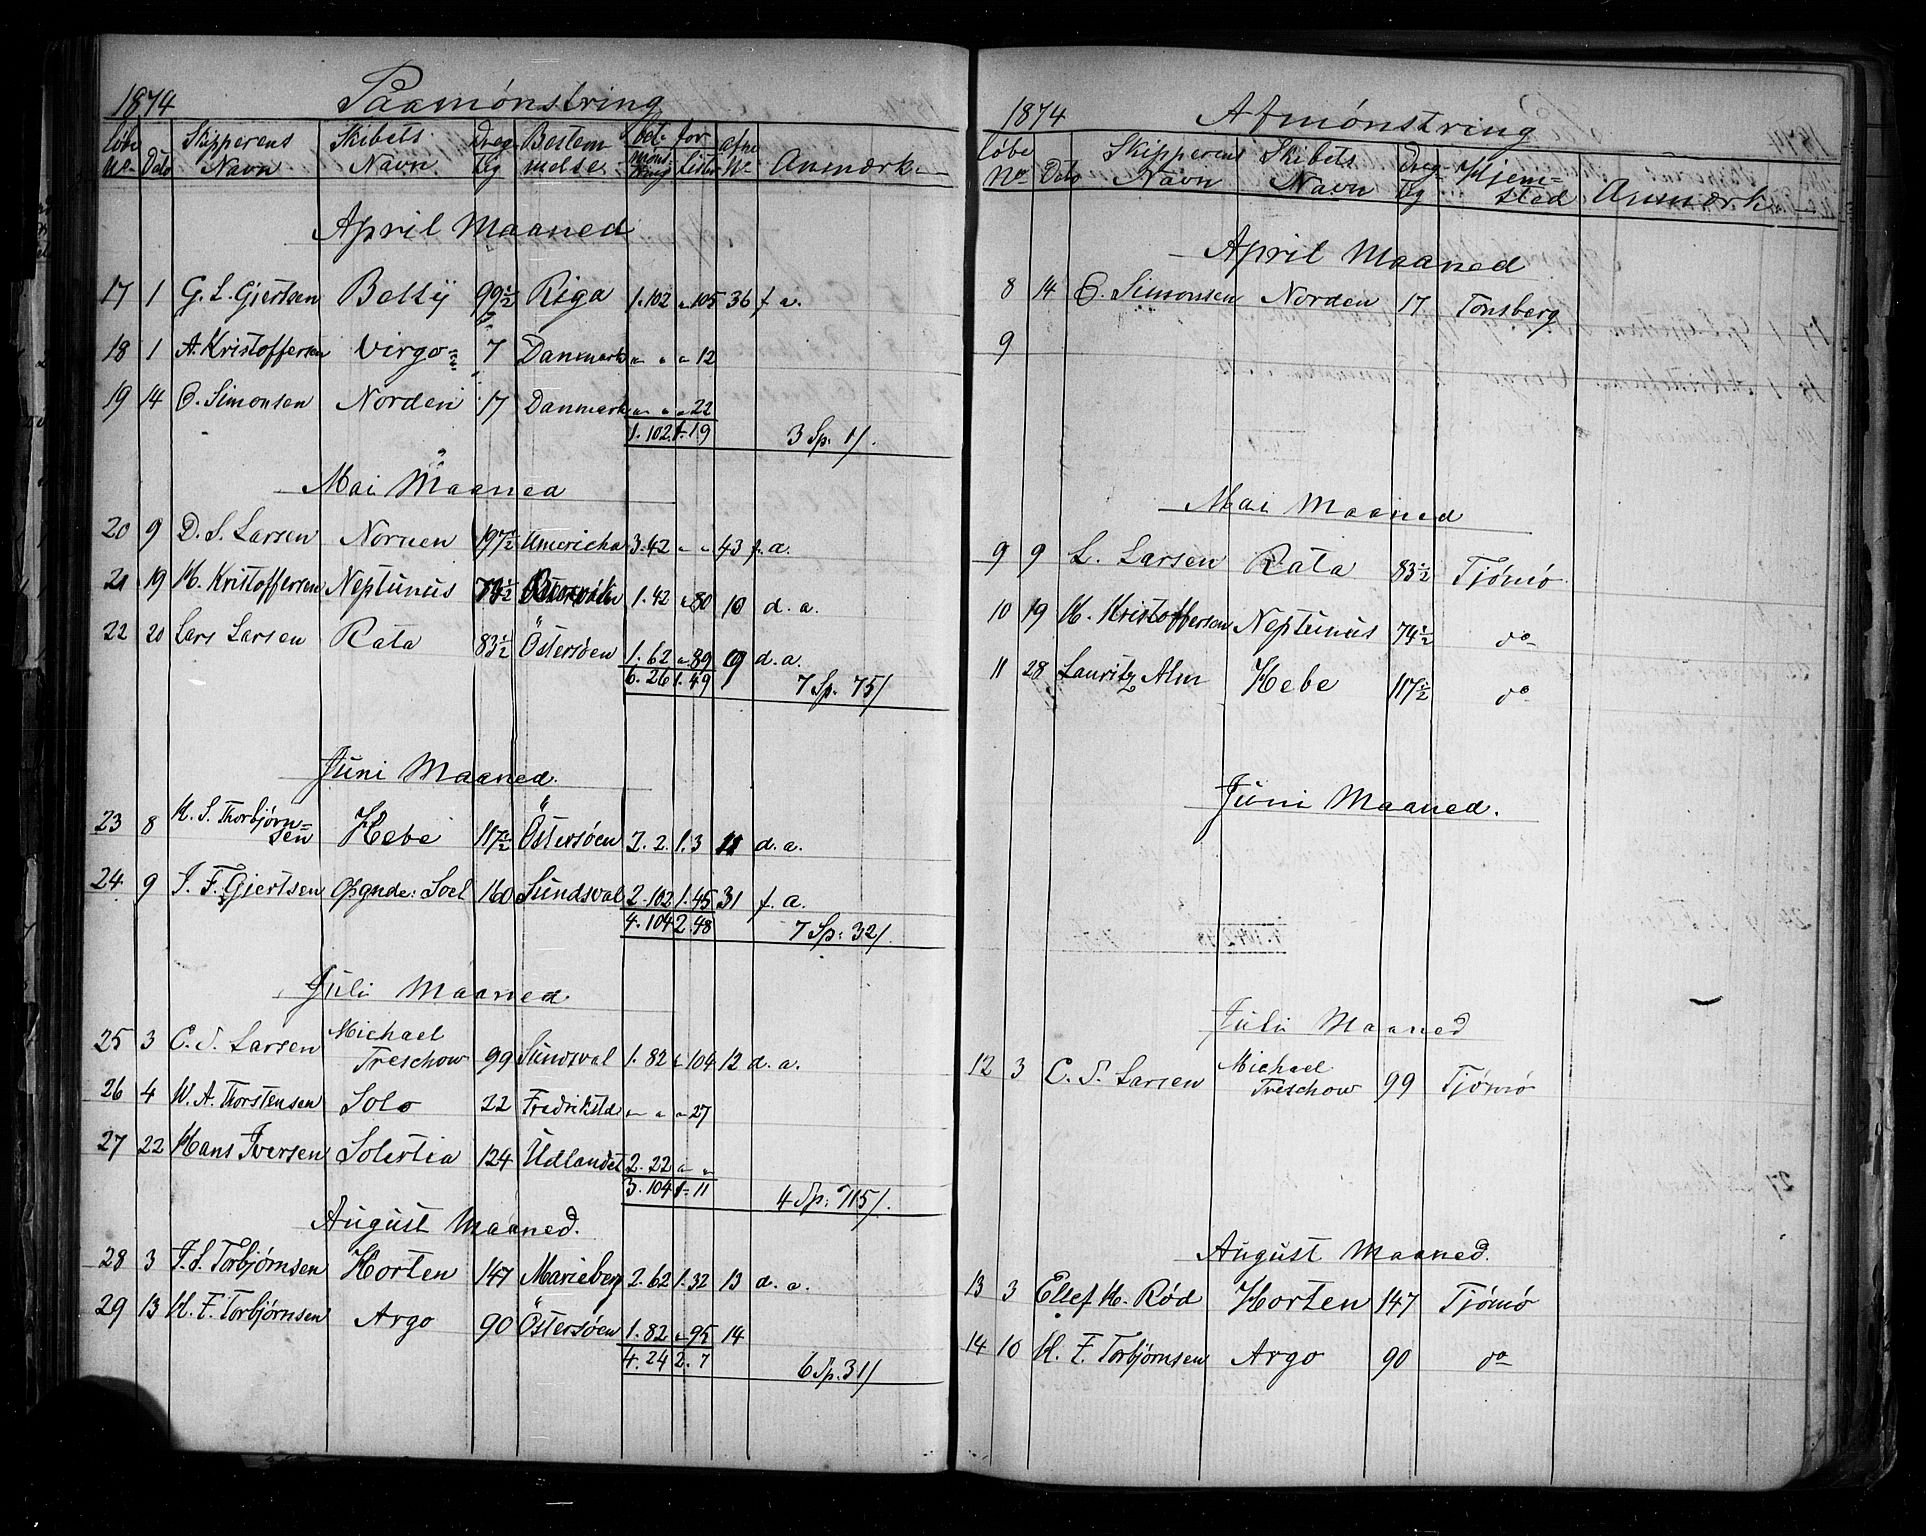 1874 Paamønstring
løbe No. Dato Skipperens Navn Skibets Navn Dræg- tig Bestem melse bet. for mønst ring lister afm No. Anmærk.
April Maaned
17 1 G. L. Gjertsen Betsy 99½ Riga 1.102 " 105 36 f. a.
18 1 A. Kristoffersen Virgo 7 Danmark " " " 12
19 14 O. Simonsen Norden 17 Danmark " " " 22
1.102 1.19 3 Sp. 1/.
Mai Maaned
20 9 D. S. Larsen Nornen 197½ Americha 3.42 " " 43 f. a.
21 19 M. Kristoffersen Neptunus 74½ 1.42 " 80 10 d. a.
22 20 Lars Larsen Rata 83½ Östersøen 1.62 " 89 9 d. a.
6.26 1.49 7 Sp. 75/
Juni Maaned.
23 8 K. S. Thorbjørn= sen Hebe 117½ Östersøen 2.2. 1.3 11 d. a.
24 9 J. F. Gjertsen Opgnde: Soel 160 Sundsval 2.102 1.45 31 f. a.
4.104 2.48 7 Sp: 32/.
Juli Maaned
25 3 C. S. Larsen Michael Treschow 99 Sundsval 1.82 " 104 12 d. a.
26 4 W. A. Thorstensen Solo 22 Fredrikstd " " " 27
27 22 Hans Iversen Solertia 124 Udlandet 2.22 " "
3.104 1.11 4 Sp: 115/.
August Maaned.
28 3 J. S. Torbjørnsen Horten 147 Marieberg 2.62 1.32 13 d. a.
29 13 H. F. Torbjørnsen Argo 90 Östersøen 1.82 " 95 14
4.24 2.7 6 Sp. 31/
1874 Afmønstring
løbe No. Dato Skipperens Navn Skibets Navn Dræg- tig Hjem- sted Anmærk
April Maaned
8 14 O. Simonsen Norden 17 Tønsberg
9
Mai Maaned
9 9 L. Larsen Rata 83½ Tjømø
10 19 M. Kristoffersen Neptunus 74½ do
11 28 Lauritz Alm Hebe 117½ do
Juni Maaned.
Juli Maaned
12 3 C. S. Larsen Michael Treschow 99 Tjømø
August Maaned.
13 3 Ellef H. Rød Horten 147 Tjømø
14 10 H. F. Torbjørnsen Argo 90 do